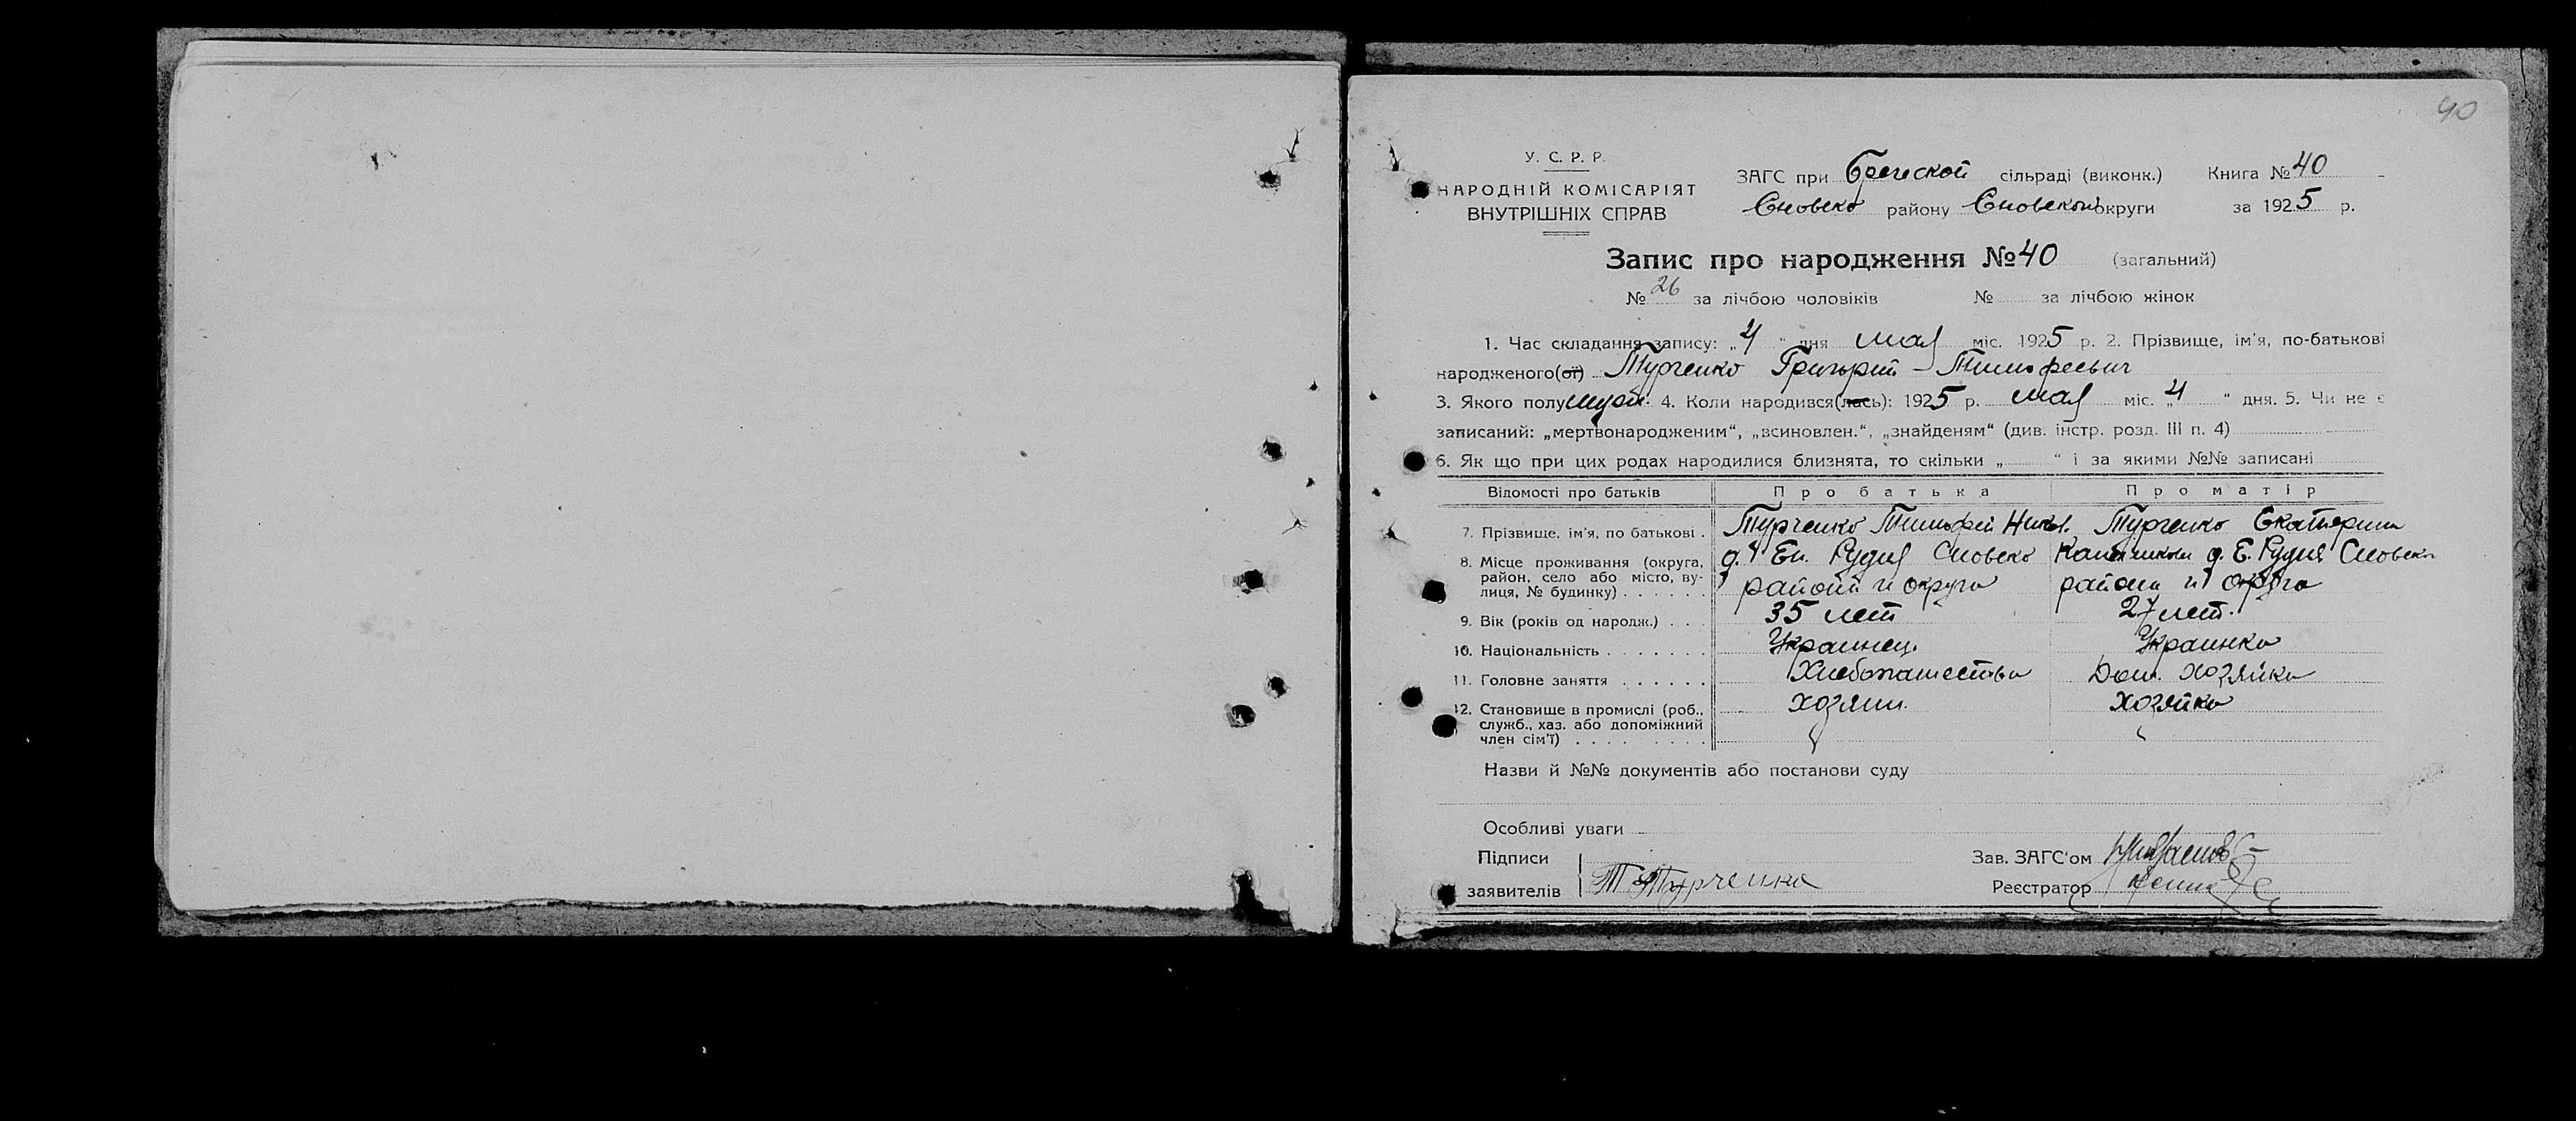 40
У. С. Р. Р.
НАРОДНІЙ КОМІСАРІЯТ
ВНУТРІШНІХ СПРАВ
ЗАГС при сільраді (виконк.) Книга № 40
Сновско району Сновской округи за 1925 р.
Запис про народження № 40 (загальний)
№ 26 за лічбою чоловіків № за лічбою жінок
1. Час складання запису: „4“ дня мая міс. 1925 р. 2. Прізвище, ім'я, по-батькові
народженого(ої) Турченко Григорий - Тимофеевич
3. Якого полу муж. 4. Коли народився(лась): 1925 р. мая міс. „4“ дня. 5. Чи не є
записаний: „мертвонародженим“, „всиновлен.“, „знайденям“ (див. інстр. розд. III п. 4)
6. Як що при цих родах народилися близнята, то скільки „ “ і за якими №№ записані
Відомості про батьків Про батька Про матір
7. Прізвище, ім'я, по батькові . Турченко Тимофей Турченко Екатерина
8. Місце проживання (округа, д. Ел. Рудня Сновско д. Е. Рудня Сновско
район, село або місто, ву- района и округа района и округа
лиця, № будинку) . . . . . .
9. Вік (років од народж.) . . . 35 лет 27 лет.
10. Національність . . . . . . . Украинец. Украинка
11. Головне заняття . . . . . . Хлебопашество Дом. хозяйка
12. Становище в промислі (роб., хозяин. хозяйка
служб., хаз. або допоміжний
член сім'ї) . . . . . . . .
Назви й №№ документів або постанови суду
Особливі уваги
Підписи Зав. ЗАГС'ом
заявителів Т Турченко Реєстратор